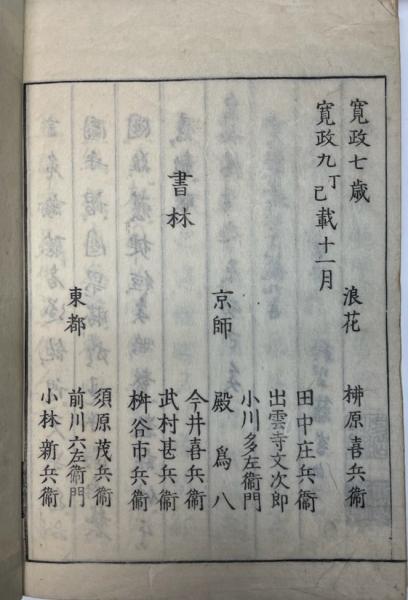 寛政七歳
寛政九丁巳載十一月
書林
浪花 柳原喜兵衛
田中庄兵衛
出雲寺文次郎
小川多左衛門
京師 殿爲八
今井喜兵衛
武村甚兵衛
桝谷市兵衛
須原茂兵衛
東都 前川六左衛門
小林新兵衛